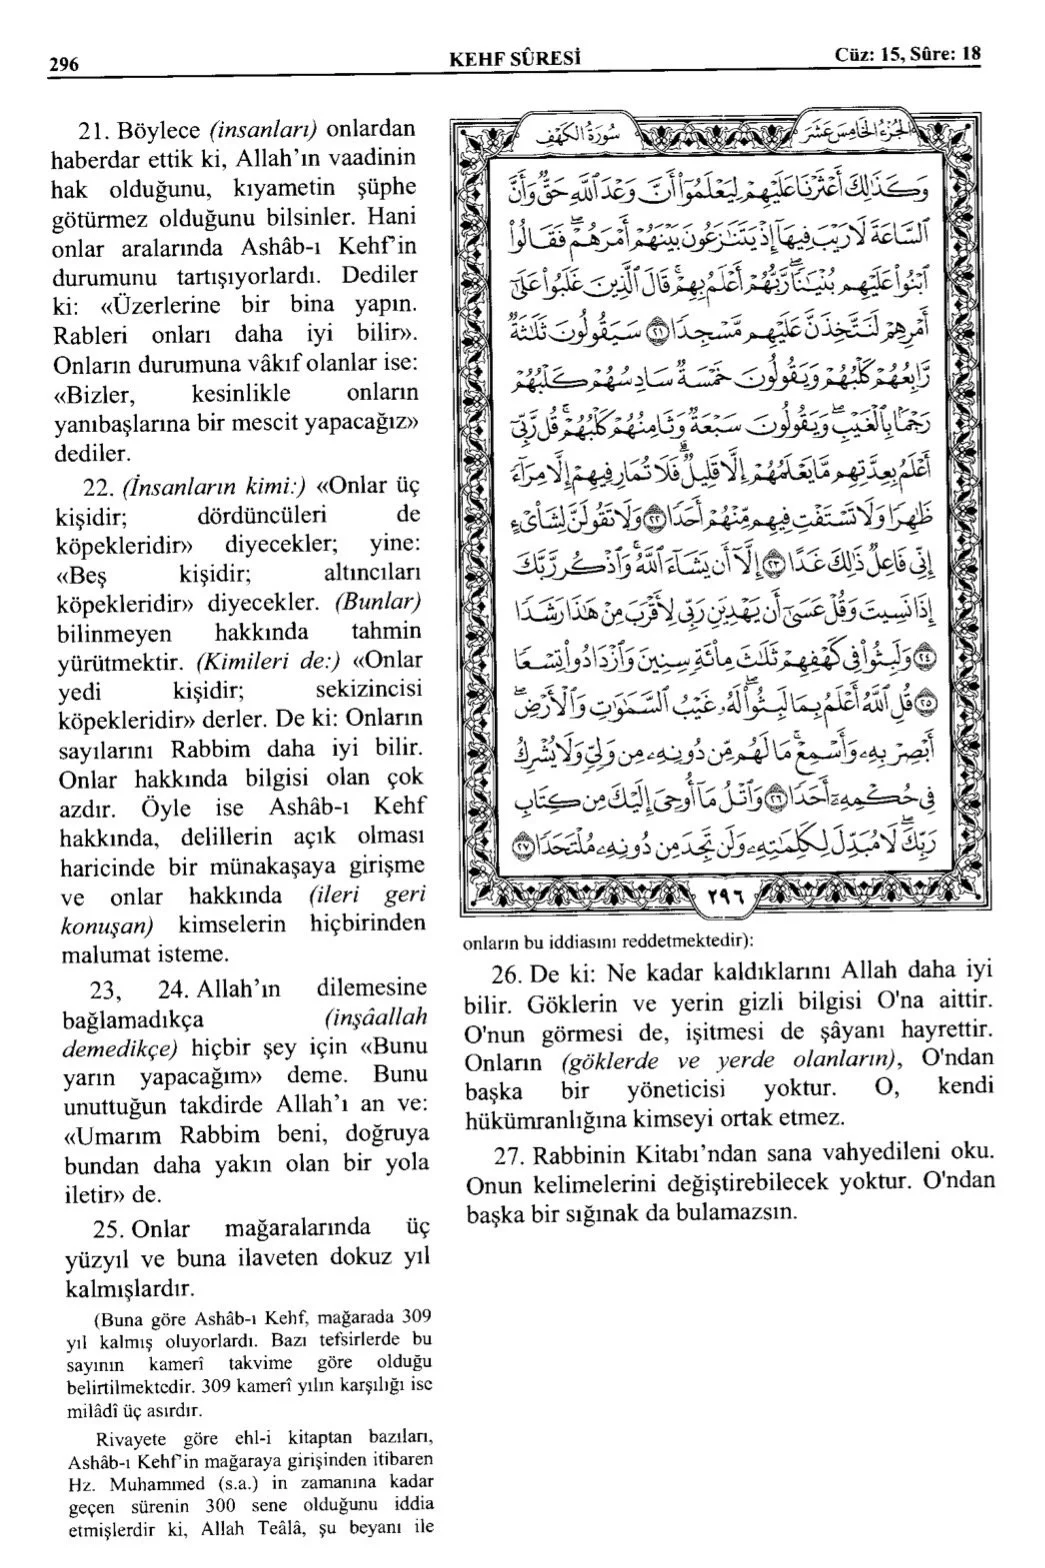 296
KEHF SÛRESİ
Cüz: 15, Sûre: 18
21. Böylece (insanları) onlardan
haberdar ettik ki, Allah’ın vaadinin
hak olduğunu, kıyametin şüphe
götürmez olduğunu bilsinler. Hani
onlar aralarında Ashâb-ı Kehf'in
durumunu tartışıyorlardı. Dediler
ki: «Üzerlerine bir bina yapın.
Rableri onları daha iyi bilir».
Onların durumuna vâkıf olanlar ise:
«Bizler, kesinlikle onların
yanıbaşlarına bir mescit yapacağız»
dediler.
22. (İnsanların kimi:) «Onlar üç
kişidir; dördüncüleri de
köpekleridir» diyecekler; yine:
«Beş kişidir; altıncıları
köpekleridir» diyecekler. (Bunlar)
bilinmeyen hakkında tahmin
yürütmektir. (Kimileri de:) «Onlar
yedi kişidir; sekizincisi
köpekleridir» derler. De ki: Onların
sayılarını Rabbim daha iyi bilir.
Onlar hakkında bilgisi olan çok
azdır. Öyle ise Ashâb-ı Kehf
hakkında, delillerin açık olması
haricinde bir münakaşaya girişme
ve onlar hakkında (ileri geri
konuşan) kimselerin hiçbirinden
malumat isteme.
23, 24. Allah’ın dilemesine
bağlamadıkça (inşâallah
demedikçe) hiçbir şey için «Bunu
yarın yapacağım» deme. Bunu
unuttuğun takdirde Allah’ı an ve:
«Umarım Rabbim beni, doğruya
bundan daha yakın olan bir yola
iletir» de.
25. Onlar mağaralarında üç
yüzyıl ve buna ilaveten dokuz yıl
kalmışlardır.
(Buna göre Ashâb-ı Kehf, mağarada 309
yıl kalmış oluyorlardı. Bazı tefsirlerde bu
sayının kamerî takvime göre olduğu
belirtilmektedir. 309 kamerî yılın karşılığı ise
milâdî üç asırdır.
Rivayete göre ehl-i kitaptan bazıları,
Ashâb-ı Kehf'in mağaraya girişinden itibaren
Hz. Muhammed (s.a.) in zamanına kadar
geçen sürenin 300 sene olduğunu iddia
etmişlerdir ki, Allah Teâlâ, şu beyanı ile
الجزء الخامس عشر
سورة الكهف
وَكَذَٰلِكَ أَعْثَرْنَا عَلَيْهِمْ لِيَعْلَمُوا أَنَّ وَعْدَ اللَّهِ حَقٌّ وَأَنَّ
السَّاعَةَ لَا رَيْبَ فِيهَا إِذْ يَتَنَازَعُونَ بَيْنَهُمْ أَمْرَهُمْ فَقَالُوا
ابْنُوا عَلَيْهِم بُنْيَانًا رَّبُّهُمْ أَعْلَمُ بِهِمْ قَالَ الَّذِينَ غَلَبُوا عَلَىٰ
أَمْرِهِمْ لَنَتَّخِذَنَّ عَلَيْهِم مَّسْجِدًا ٢١ سَيَقُولُونَ ثَلَاثَةٌ
رَّابِعُهُمْ كَلْبُهُمْ وَيَقُولُونَ خَمْسَةٌ سَادِسُهُمْ كَلْبُهُمْ
رَجْمًا بِالْغَيْبِ وَيَقُولُونَ سَبْعَةٌ وَثَامِنُهُمْ كَلْبُهُمْ قُل رَّبِّي
أَعْلَمُ بِعِدَّتِهِم مَّا يَعْلَمُهُمْ إِلَّا قَلِيلٌ فَلَا تُمَارِ فِيهِمْ إِلَّا مِرَاءً
ظَاهِرًا وَلَا تَسْتَفْتِ فِيهِم مِّنْهُمْ أَحَدًا ٢٢ وَلَا تَقُولَنَّ لِشَايْءٍ
إِنِّي فَاعِلٌ ذَٰلِكَ غَدًا ٢٣ إِلَّا أَن يَشَاءَ اللَّهُ وَاذْكُر رَّبَّكَ
إِذَا نَسِيتَ وَقُلْ عَسَىٰ أَن يَهْدِيَنِ رَبِّي لِأَقْرَبَ مِنْ هَٰذَا رَشَدًا
٢٤ وَلَبِثُوا فِي كَهْفِهِمْ ثَلَاثَ مِائَةٍ سِنِينَ وَازْدَادُوا تِسْعًا
٢٥ قُلِ اللَّهُ أَعْلَمُ بِمَا لَبِثُوا لَهُ غَيْبُ السَّمَاوَاتِ وَالْأَرْضِ
أَبْصِرْ بِهِ وَأَسْمِعْ مَا لَهُم مِّن دُونِهِ مِن وَلِيٍّ وَلَا يُشْرِكُ
فِي حُكْمِهِ أَحَدًا ٢٦ وَاتْلُ مَا أُوحِيَ إِلَيْكَ مِن كِتَابِ
رَبِّكَ لَا مُبَدِّلَ لِكَلِمَاتِهِ وَلَن تَجِدَ مِن دُونِهِ مُلْتَحَدًا ٢٧
٢٩٦
onların bu iddiasını reddetmektedir):
26. De ki: Ne kadar kaldıklarını Allah daha iyi
bilir. Göklerin ve yerin gizli bilgisi O'na aittir.
O'nun görmesi de, işitmesi de şâyanı hayrettir.
Onların (göklerde ve yerde olanların), O'ndan
başka bir yöneticisi yoktur. O, kendi
hükümranlığına kimseyi ortak etmez.
27. Rabbinin Kitabı’ndan sana vahyedileni oku.
Onun kelimelerini değiştirebilecek yoktur. O'ndan
başka bir sığınak da bulamazsın.